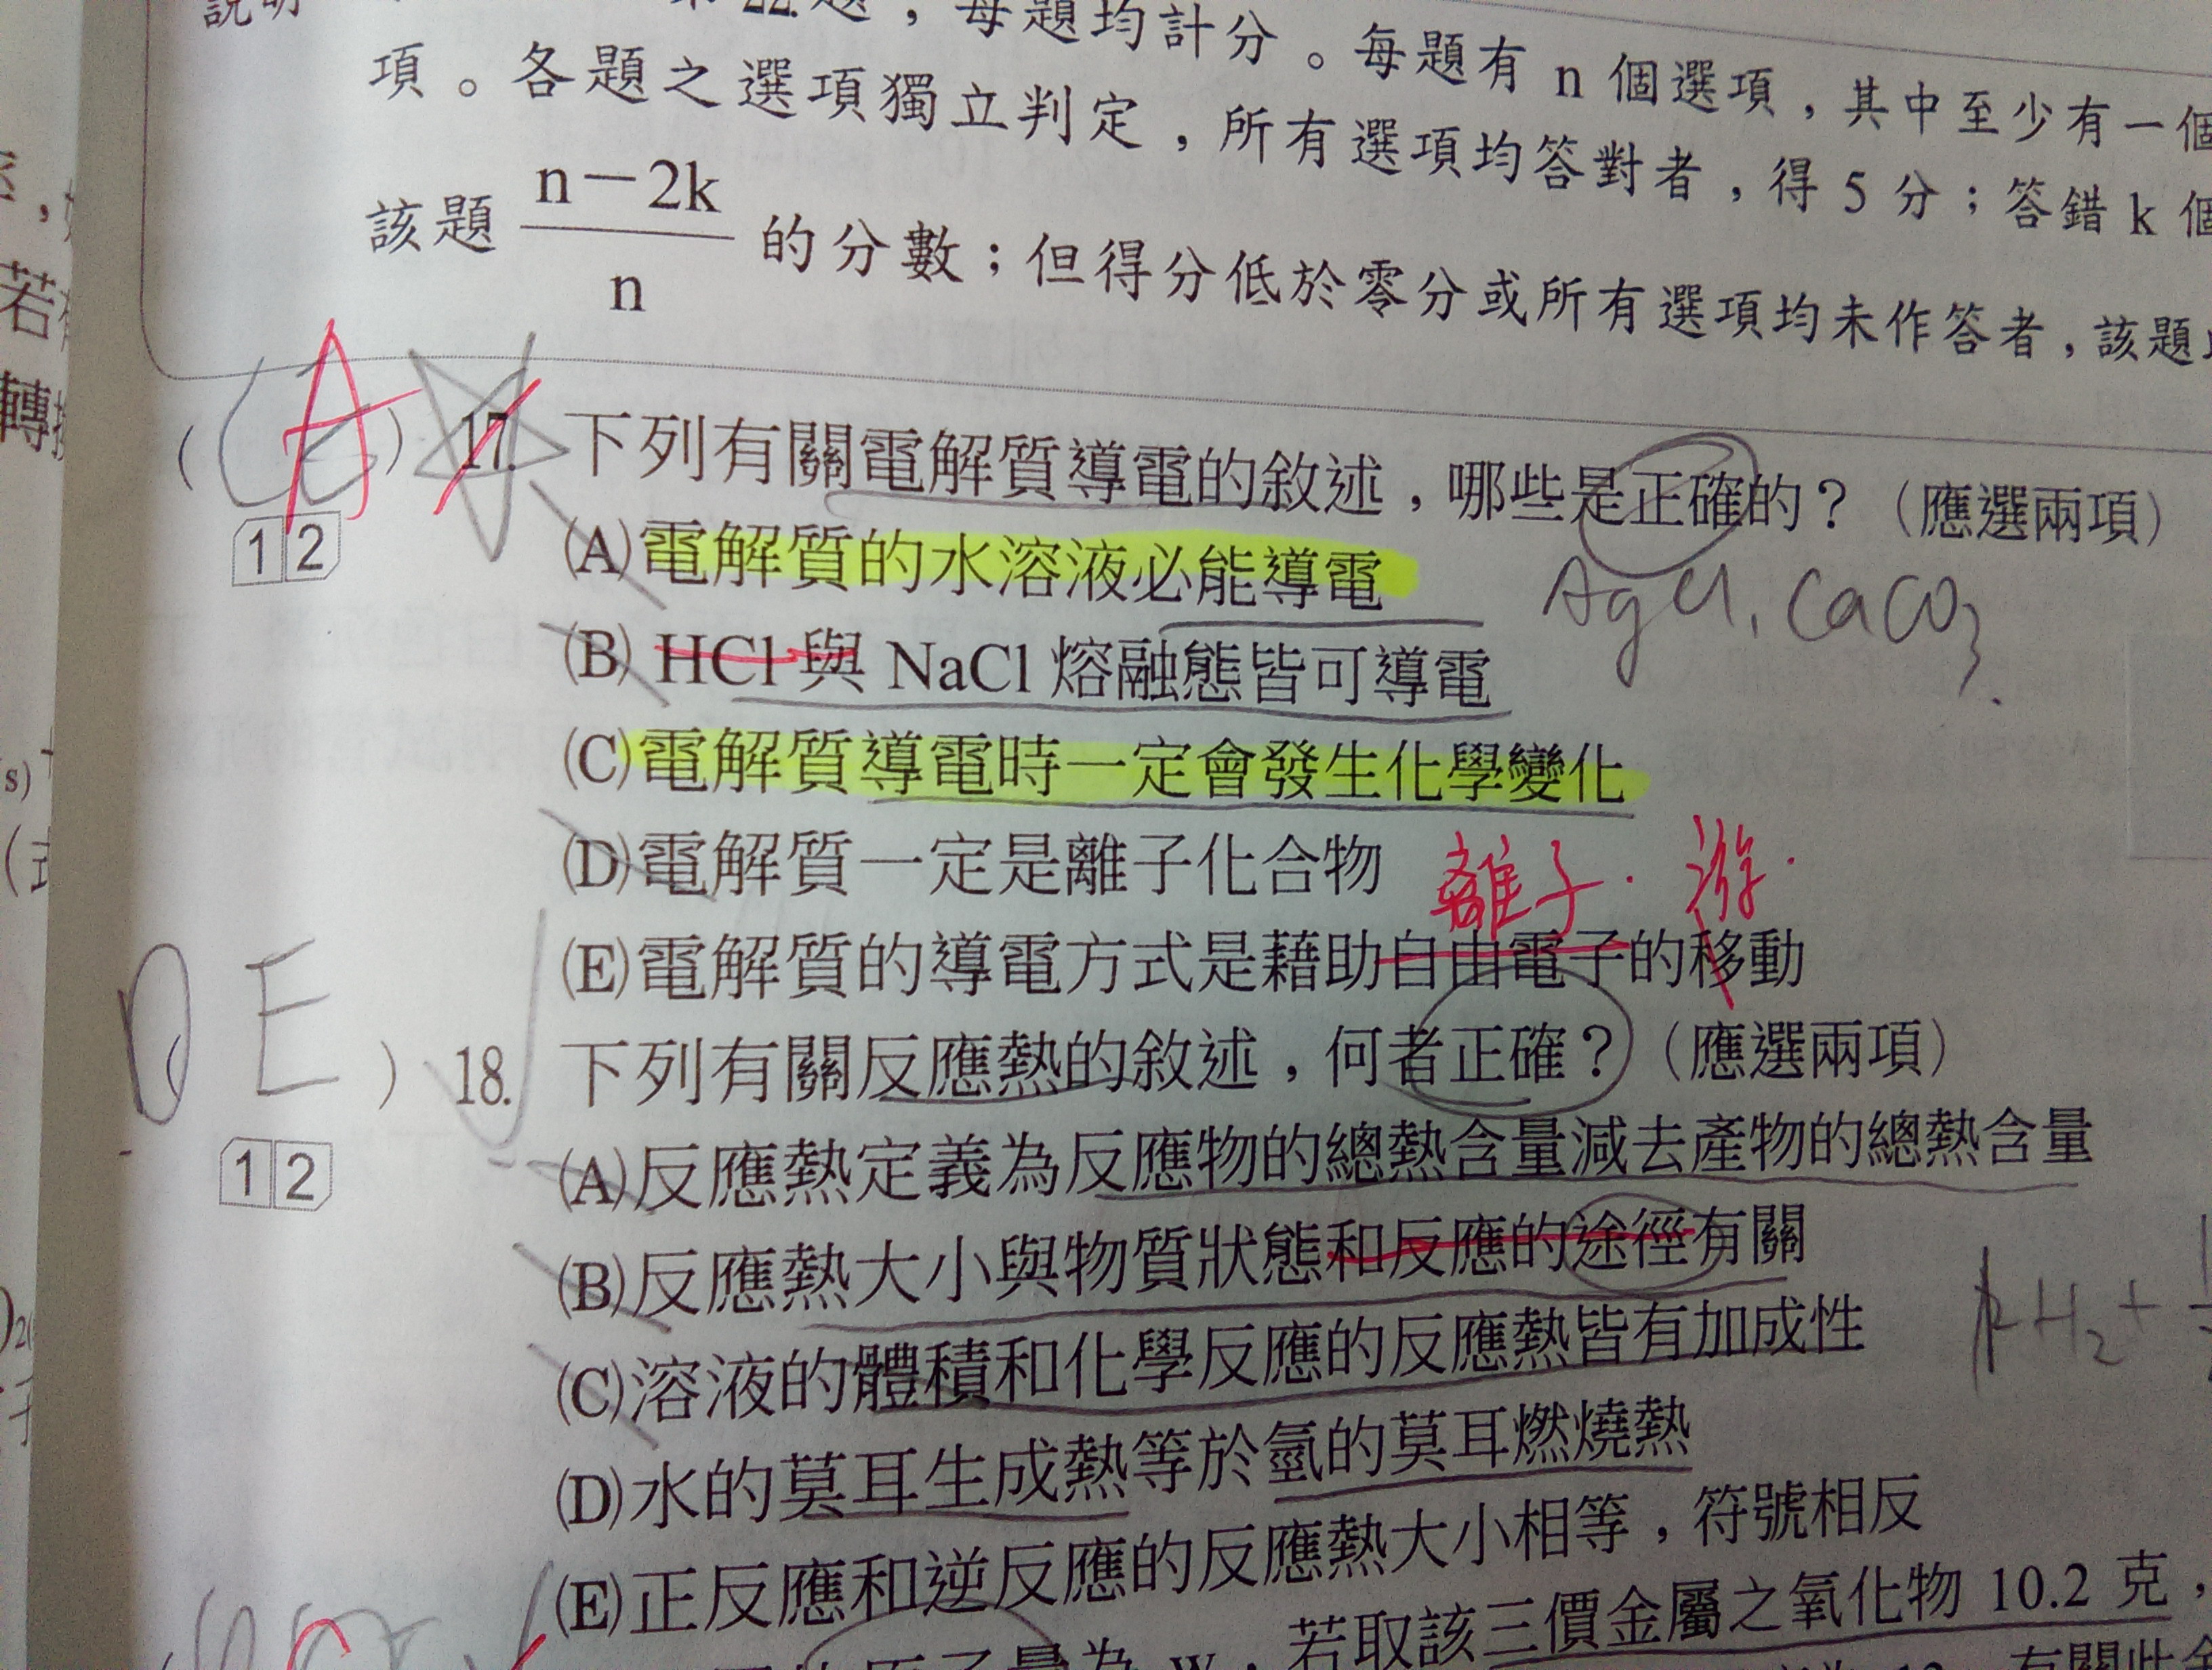 說明 題，每題均計分。每題有 n 個選項，其中至少有一個
項。各題之選項獨立判定，所有選項均答對者，得 5 分；答錯 k 個
該題 n－2k / n 的分數；但得分低於零分或所有選項均未作答者，該題
(A) 17. 下列有關電解質導電的敘述，哪些是正確的？（應選兩項）
12 (A)電解質的水溶液必能導電
AgCl, CaCO3
(B) HCl 與 NaCl 熔融態皆可導電
(C)電解質導電時一定會發生化學變化
(D)電解質一定是離子化合物
離子 游
(E)電解質的導電方式是藉助自由電子的移動
DE ) 18. 下列有關反應熱的敘述，何者正確？（應選兩項）
12 (A)反應熱定義為反應物的總熱含量減去產物的總熱含量
(B)反應熱大小與物質狀態和反應的途徑有關
H2+
(C)溶液的體積和化學反應的反應熱皆有加成性
(D)水的莫耳生成熱等於氫的莫耳燃燒熱
(E)正反應和逆反應的反應熱大小相等，符號相反
若取該三價金屬之氧化物 10.2 克，